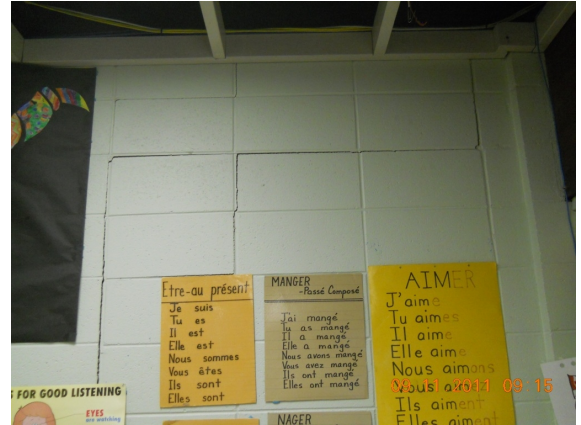 Etre-au présent
Je suis
Tu es
Il est
Elle est
Nous sommes
Vous êtes
Ils sont
Elles sont
MANGER
-Passé Composé
J'ai mangé
Tu as mangé
Il a mangé
Elle a mangé
Nous avons mangé
Vous avez mangé
Ils ont mangé
Elles ont mangé
AIMER
J'aime
Tu aimes
Il aime
Elle aime
Nous aimons
Vous
Ils aiment
Elles aiment
S FOR GOOD LISTENING
EYES
are watching
NAGER
11 2011 09:15